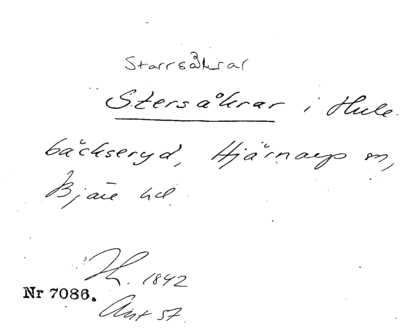 Starrsåkrar
Stersåkrar i Hule
bäckseryd, Hjärnarp sn,
Bjäre hd.
H. 1842
Nr 7086.
Ant 57.